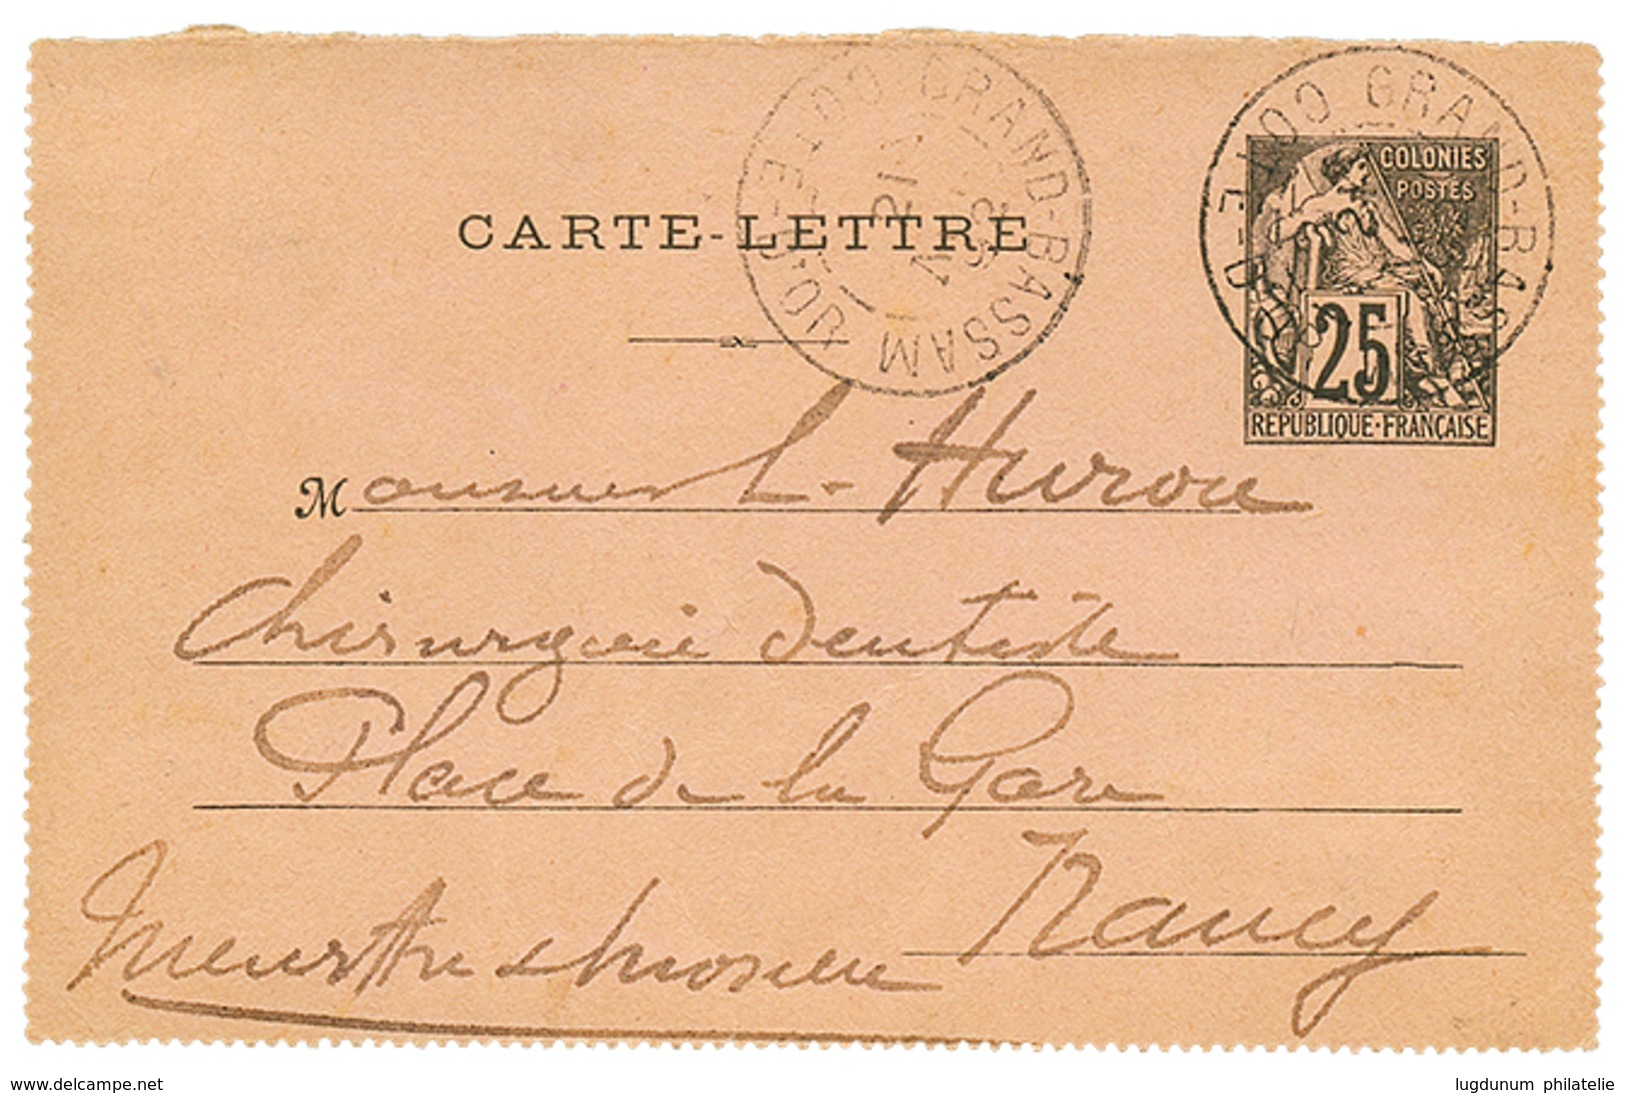 GRAND-BASSAM
COTE-D'OR
COLONIES
POSTES
CARTE-LETTRE
25
REPUBLIQUE·FRANÇAISE
Monsieur L. Huron
Chirurgien dentiste
Place de la Gare
Nancy
Meurthe & Moselle
www.delcampe.net
lugdunum philatelie